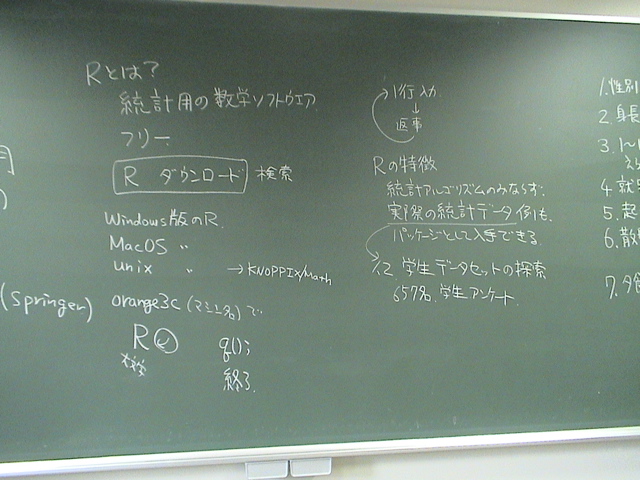 Rとは?
統計用の数学ソフトウェア
フリー
R ダウンロード 検索
Windows版のR
MacOS 〃
unix 〃 → KNOPPIX/Math
(Springer)
orange3c (マシン名) で
R
大文字
q();
終了.
1行入力
↓
返事
Rの特徴
統計アルゴリズムのみならず、
実際の統計データ例も、
パッケージとして入手できる.
1.2 学生データセットの探索
657名. 学生アンケート.
1. 性別
2. 身長
3. 1~1
4. 就
5. 起
6. 散
7. 夕食